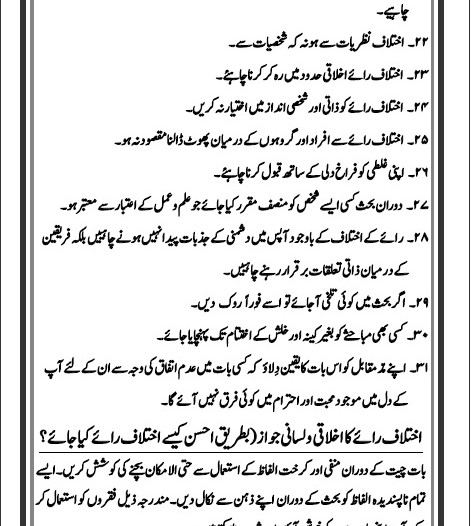 چاہیے۔
۲۲۔ اختلاف نظریات سے ہو نہ کہ شخصیات سے۔
۲۳۔ اختلاف رائے اخلاقی حدود میں رہ کر کرنا چاہئے۔
۲۴۔ اختلاف رائے کو ذاتی اور شخصی انداز میں اختیار نہ کریں۔
۲۵۔ اختلاف رائے سے افراد اور گروہوں کے درمیان پھوٹ ڈالنا مقصود نہ ہو۔
۲۶۔ اپنی غلطی کو فراخ دلی کے ساتھ قبول کرنا چاہئے۔
۲۷۔ دوران بحث کسی ایسے شخص کو منصف مقرر کیا جائے جو علم و عمل کے اعتبار سے معتبر ہو۔
۲۸۔ رائے کے اختلاف کے باوجود آپس میں دشمنی کے جذبات پیدا نہیں ہونے چاہئیں بلکہ فریقین
کے درمیان ذاتی تعلقات برقرار رہنے چاہئیں۔
۲۹۔ اگر بحث میں کوئی تلخی آ جائے تو اسے فوراً روک دیں۔
۳۰۔ کسی بھی مباحثے کو بغیر کینہ اور خلش کے اختتام تک پہنچایا جائے۔
۳۱۔ اپنے مدّ مقابل کو اس بات کا یقین دِلاؤ کہ کسی بات میں عدم اتفاق کی وجہ سے ان کے لئے آپ
کے دل میں موجود محبت اور احترام میں کوئی فرق نہیں آئے گا۔
اختلاف رائے کا اخلاقی و لسانی جواز (بطریق احسن کیسے اختلاف رائے کیا جائے؟
بات چیت کے دوران منفی اور کرخت الفاظ کے استعمال سے حتی الامکان بچنے کی کوشش کریں۔ ایسے
تمام ناپسندیدہ الفاظ کو بحث کے دوران اپنے ذہن سے نکال دیں۔ مندرجہ ذیل فقروں کو استعمال کر